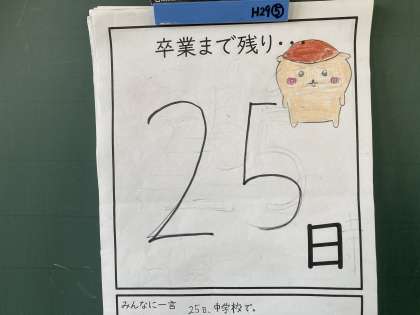 H29⑤
卒業まで残り・・・
25
日
みんなに一言
25日、中学校で。